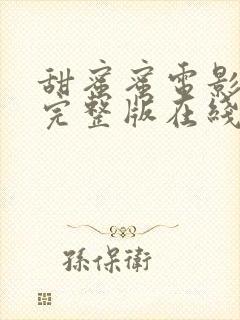 甜蜜蜜電影
完整版在綫
孫保衛